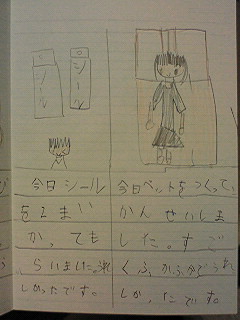 シール
シール
今日シール
を2まい
かっても
らいました。うれ
しかったです。
今日ベットをつくって、
かんせいしま
した。すご
くふかふかでうれ
しかったです。